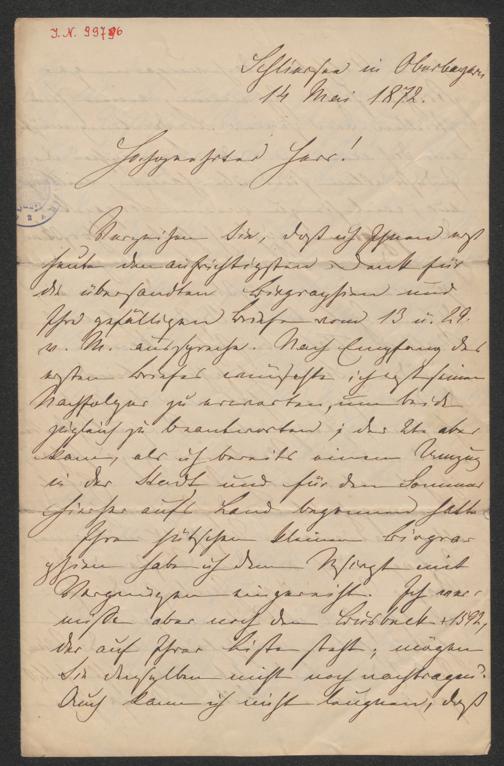 J. N. 99796
Schliersee in Oberbayern
14 Mai 1872.
Hochgeehrter Herr!
Verzeihen Sie, daß ich Ihnen erst
heute den aufrichtigsten Dank für
die übersandten Biographien und
Ihre gefälligen Briefe vom 13 u. 29.
v. M. ausspreche. Nach Empfang des
ersten Briefes wünschte ich erst seinen
Nachfolger zu erwarten, um beide
zugleich zu beantworten; der 2te aber
kam, als ich bereits einen Umzug
in der Stadt und für den Sommer
hierher aufs Land begonnen hatte
Ihre hübschen kleinen Biogra-
phien habe ich dem mit
Vergnügen eingereiht. Ich ver-
misse aber noch den Busbeck +1592,
der auf Ihrer Liste steht; mögen
Sie denselben nicht noch nachtragen?
Auch kann ich nicht leugnen, daß